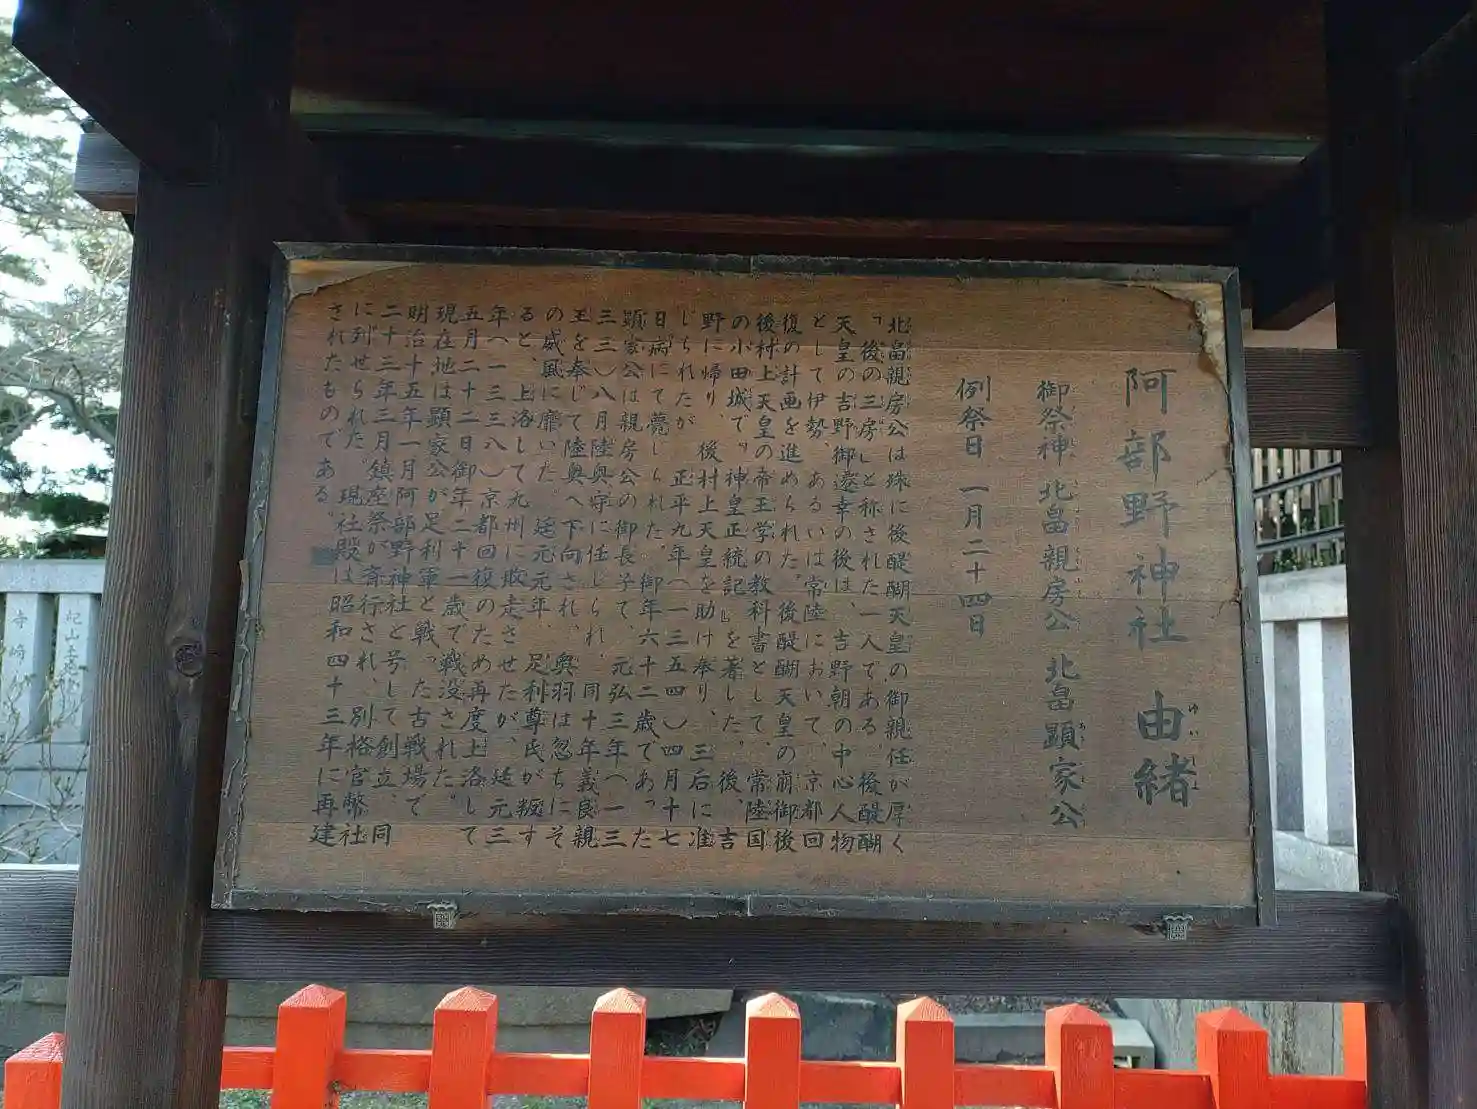 阿部野神社 由緒
御祭神 北畠親房公 北畠顕家公
例祭日 一月二十四日
北畠親房公は殊に後醍醐天皇の御親任が厚く
「後の三房」と称された一人である。後醍醐
天皇の吉野御遷幸の後は、吉野朝の中心人物
として伊勢、あるいは常陸において、京都回
復の計画を進められた。後醍醐天皇の崩御後
後村上天皇の帝王学の教科書として、常陸国
の小田城で『神皇正統記』を著した。後、吉
野に帰り、後村上天皇を助け奉り、三后に准
じられたが、正平九年(一三五四)四月十七
日病にて薨じられた。御年六十二歳であった
顕家公は親房公の御長子で、元弘三年(一三
三三)八月陸奥守に任じられ、同十年義良親
王を奉じて陸奥へ下向され、奥羽は忽ちにそ
の威風に靡いた。延元元年、足利尊氏が叛す
ると、上洛して九州に敗走させたが、延元三
年(一三三八)京都回復のため再度上洛して
五月二十二日御年二十一歳で戦没された。
現在地は顕家公が足利軍と戦った古戦場で
明治十五年一月阿部野神社と号して創立、同
二十三年三月鎮座祭が斎行され、別格官幣社
に列せられた。現社殿は昭和四十三年に再建
されたものである。
ゆい
しょ